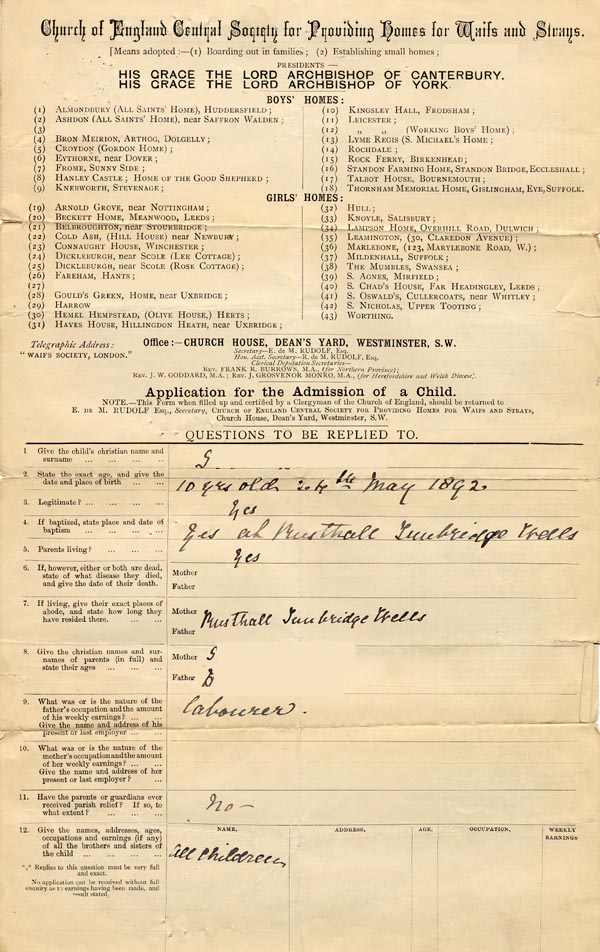 Church of England Central Society for Providing Homes for Waifs and Strays.
[Means adopted :—(1) Boarding out in families; (2) Establishing small homes;
PRESIDENTS —
HIS GRACE THE LORD ARCHBISHOP OF CANTERBURY.
HIS GRACE THE LORD ARCHBISHOP OF YORK.
BOYS' HOMES:
(1) ALMONDBURY (ALL SAINTS' HOME), HUDDERSFIELD;
(2) ASHDON (ALL SAINTS' HOME), near SAFFRON WALDEN;
(3)
(4) BRON MEIRION, ARTHOG, DOLGELLY;
(5) CROYDON (GORDON HOME);
(6) EYTHORNE, near DOVER;
(7) FROME, SUNNY SIDE;
(8) HANLEY CASTLE; HOME OF THE GOOD SHEPHERD;
(9) KNEBWORTH, STEVENAGE;
(10) KINGSLEY HALL, FRODSHAM;
(11) LEICESTER;
(12) „ „ (WORKING BOYS' HOME);
(13) LYME REGIS (S. MICHAEL'S HOME;
(14) ROCHDALE;
(15) ROCK FERRY, BIRKENHEAD;
(16) STANDON FARMING HOME, STANDON BRIDGE, ECCLESHALL;
(17) TALBOT HOUSE, BOURNEMOUTH;
(18) THORNHAM MEMORIAL HOME, GISLINGHAM, EYE, SUFFOLK.
GIRLS' HOMES:
(19) ARNOLD GROVE, near NOTTINGHAM;
(20) BECKETT HOME, MEANWOOD, LEEDS;
(21) BELBROUGHTON, near STOURBRIDGE;
(22) COLD ASH, (HILL HOUSE) near NEWBURY;
(23) CONNAUGHT HOUSE, WINCHESTER;
(24) DICKLEBURGH, near SCOLE (LEE COTTAGE);
(25) DICKLEBURGH, near SCOLE (ROSE COTTAGE);
(26) FAREHAM, HANTS;
(27)
(28) GOULD'S GREEN, HOME, near UXBRIDGE;
(29) HARROW
(30) HEMEL HEMPSTEAD, (OLIVE HOUSE,) HERTS;
(31) HAYES HOUSE, HILLINGDON HEATH, near UXBRIDGE;
(32) HULL;
(33) KNOYLE, SALISBURY;
(34) LAMPSON HOME, OVERHILL ROAD, DULWICH;
(35) LEAMINGTON, (30, CLAREDON AVENUE);
(36) MARLEBONE, (123, MARYLEBONE ROAD, W.);
(37) MILDENHALL, SUFFOLK;
(38) THE MUMBLES, SWANSEA;
(39) S. AGNES, MIRFIELD;
(40) S. CHAD'S HOUSE, FAR HEADINGLEY, LEEDS;
(41) S. OSWALD'S, CULLERCOATS, near WHITLEY;
(42) S. NICHOLAS, UPPER TOOTING;
(43) WORTHING.
Telegraphic Address:
"WAIF'S SOCIETY, LONDON."
Office:—CHURCH HOUSE, DEAN'S YARD, WESTMINSTER, S.W.
Secretary—E. de M. RUDOLF, Esq.
Hon. Asst. Secretary—R. de M. RUDOLF, Esq.
Clerical Deputation Secretaries—
REV. FRANK R. BURROWS, M.A., (for Northern Province);
REV. J. W. GODDARD, M.A.; REV. J. GROSVENOR MONRO, M.A., (for Herefordshire and Welsh Dioceses).
Application for the Admission of a Child.
NOTE.—This Form when filled up and certified by a Clergyman of the Church of England, should be returned to
E. DE M. RUDOLF Esq., Secretary, CHURCH OF ENGLAND CENTRAL SOCIETY FOR PROVIDING HOMES FOR WAIFS AND STRAYS,
Church House, Dean's Yard, Westminster, S.W.
QUESTIONS TO BE REPLIED TO.
1 Give the child's christian name and
surname ... ... ...
G
2. State the exact age, and give the
date and place of birth ... ...
10 yrs old 24th May 1892
3. Legitimate? ... ... ... ...
Yes
4. If baptized, state place and date of
baptism ... ... ... ...
Yes at Rusthall Tunbridge Wells
5. Parents living? ... ... ...
Yes
6. If, however, either or both are dead,
state of what disease they died,
and give the date of their death.
Mother
Father
7. If living, give their exact places of
abode, and state how long they
have resided there. ... ...
Mother Rusthall Tunbridge Wells
Father
8. Give the christian names and sur-
names of parents (in full) and
state their ages ... ... ...
Mother G
Father D
9. What was or is the nature of the
father's occupation and the amount
of his weekly earnings? ... ...
Give the name and address of his
present or last employer ... ...
labourer.
10. What was or is the nature of the
mother's occupation and the amount
of her weekly earnings? ... ...
Give the name and address of her
present or last employer? ...
11. Have the parents or guardians ever
received parish relief? If so, to
what extent? ... ... ...
no—
12. Give the names, addresses, ages,
occupations and earnings (if any)
of all the brothers and sisters of
the child ... ... ... ...
*** Replies to this question must be very full
and exact.
No application can be received without full
enquiry as to earnings having been made, and
result stated.
NAME. ADDRESS. AGE. OCCUPATION. WEEKLY
EARNINGS
all children